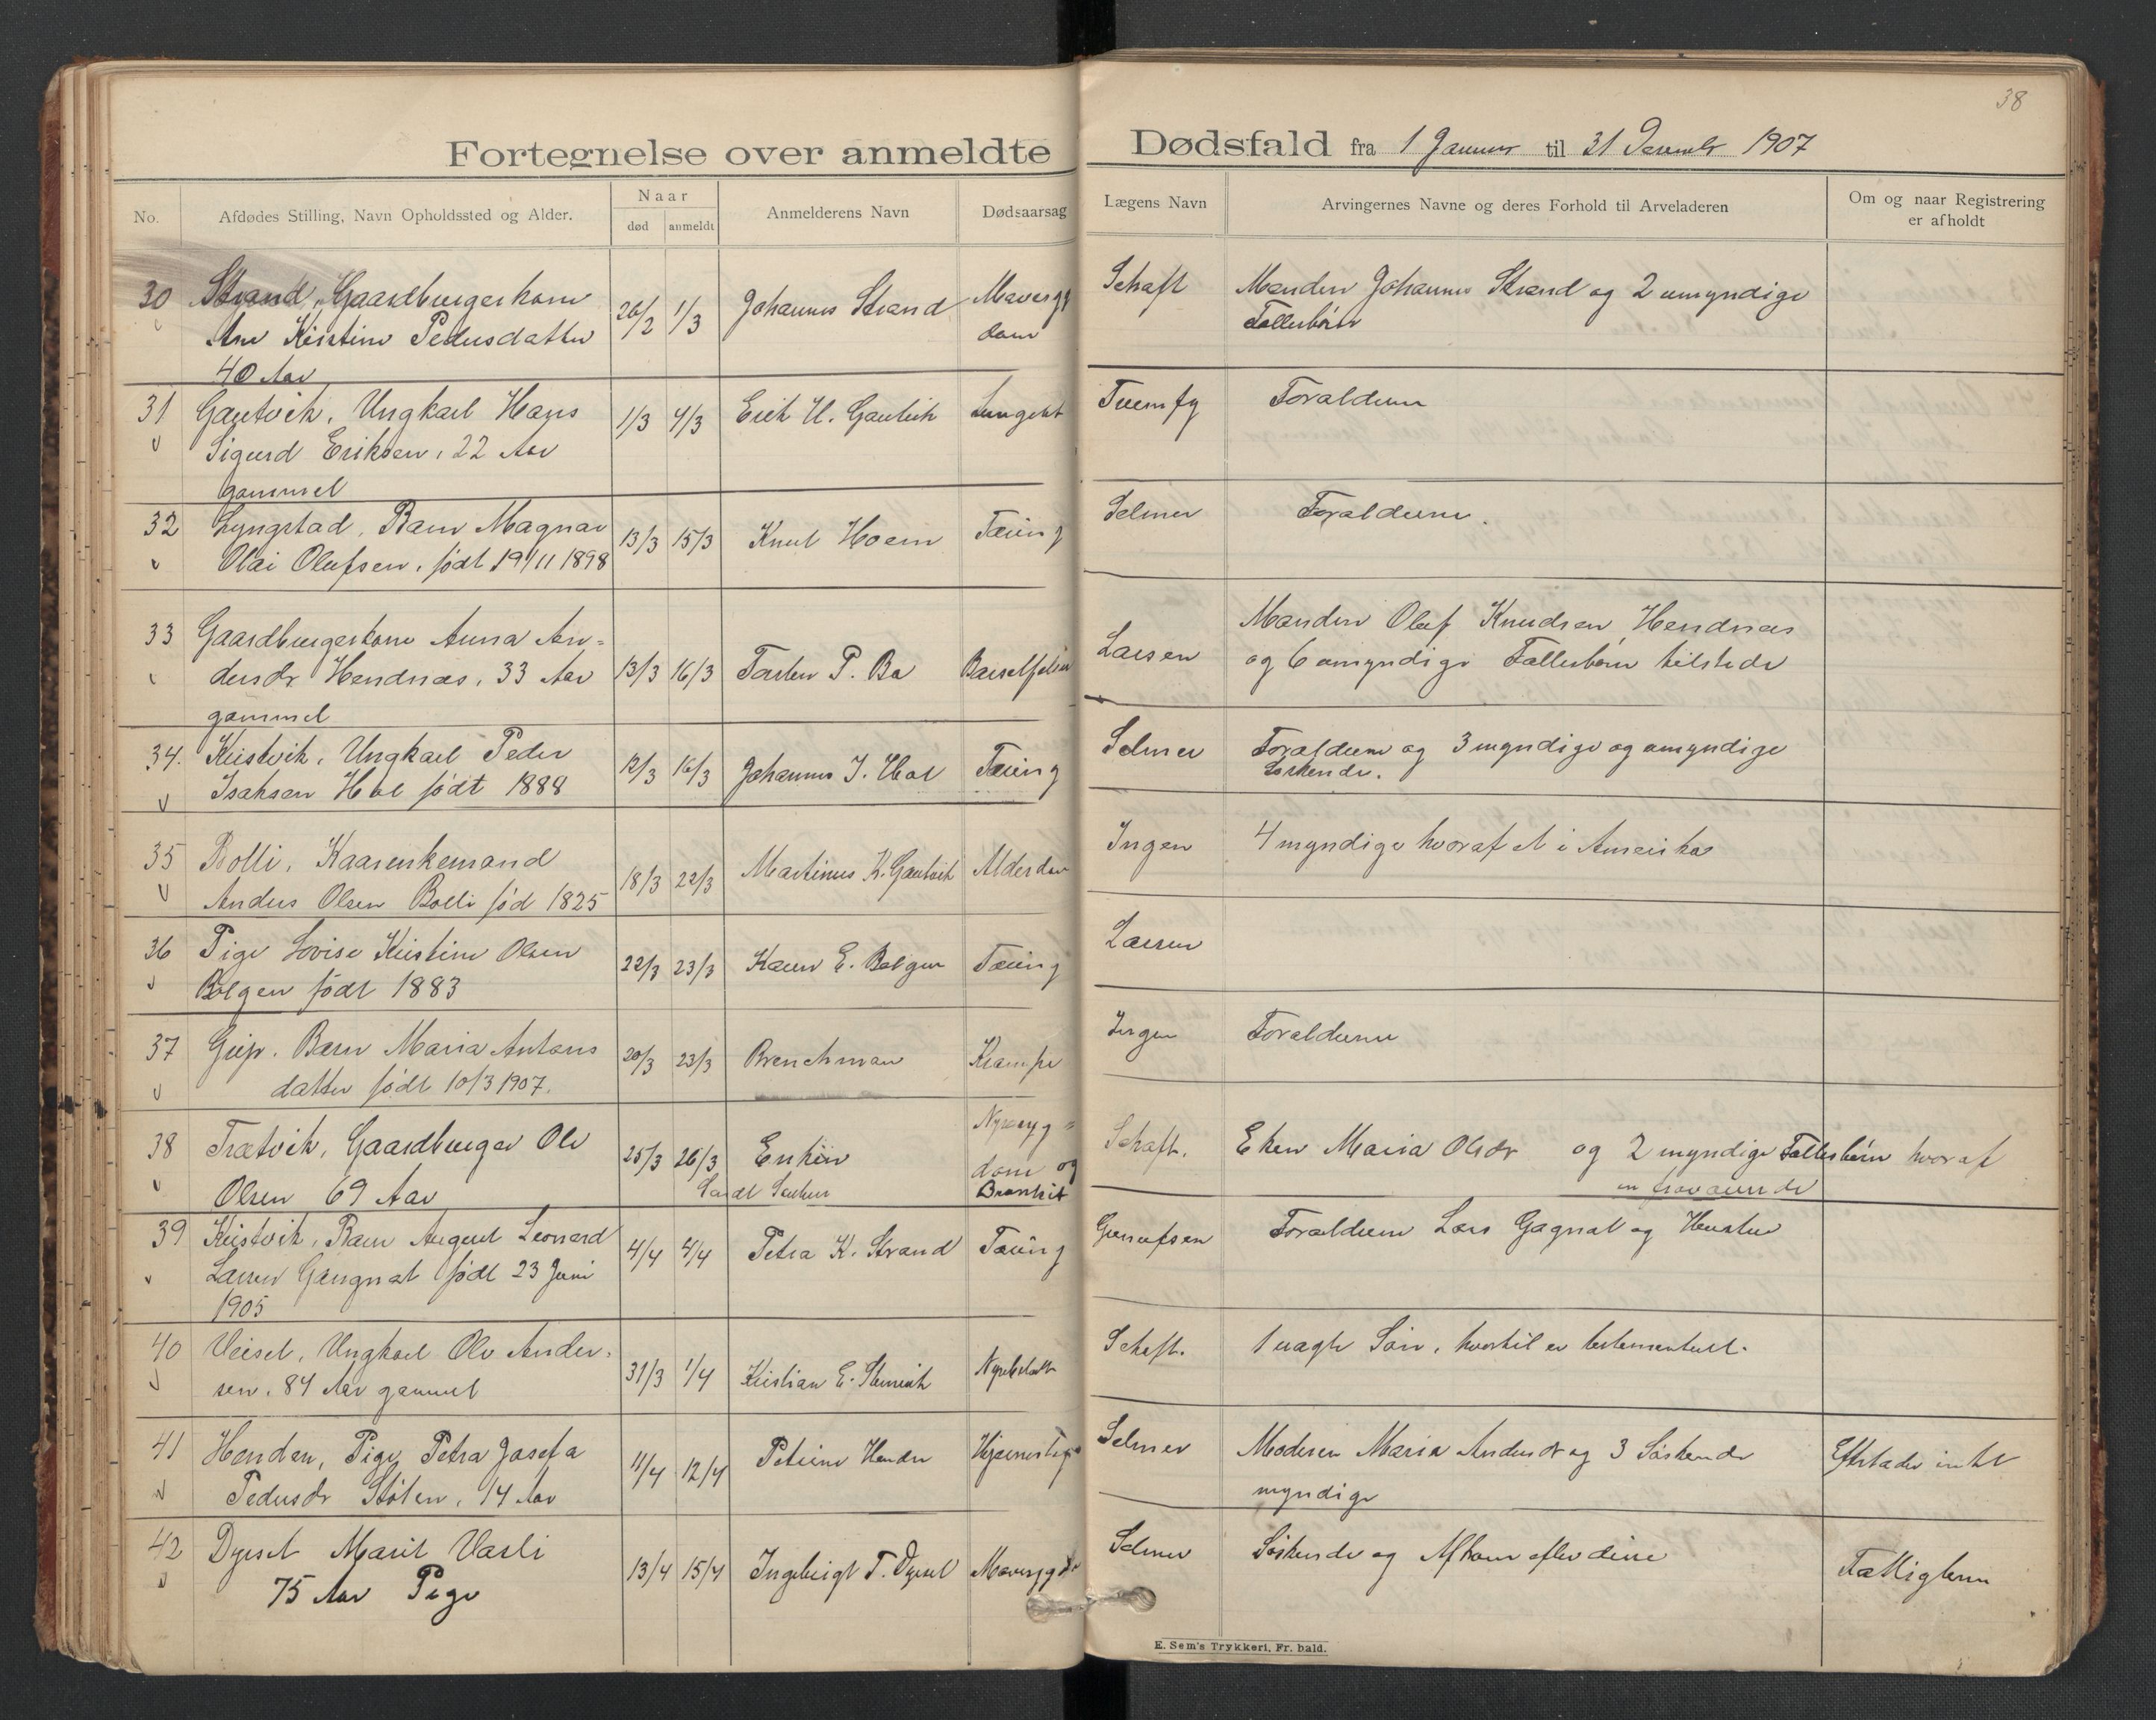 38
Fortegnelse over anmeldte Dødsfald fra 1 Januar til 31 December 1907
No.
Afdødes Stilling, Navn Opholdssted og Alder.
Naar
død
anmeldt
Anmelderens Navn
Dødsaarsag
Lægens Navn
Arvingernes Navne og deres Forhold til Arveladeren
Om og naar Registrering
er afholdt
30 Strand, Gaardbrugerkone
Ane Kristine Pedersdatter
40 Aar
26/2 1/3 Johannes Strand
Mavesyg
dom
Schaft
Manden Johannes Strand og 2 umyndige
Fællesbørn
31 Gautvik, Ungkarl Hans
Sigurd Eriksen, 22 Aar
gammel
1/3 4/3 Erik H. Gautvik
Foraldrene
32 Lyngstad, Barn Magnar
Olai Olufsen, født 19/11 1898
13/3 15/3 Knut Hoem
Tæring
Selmer
Foraldrene.
33 Gaardbrugerkone Anna An=
dersdr Hendnæs, 33 Aar
gammel
13/3 16/3 Torsten P. Bø
Barselfeber
Larsen
Manden Oluf Knudsen Hendnæs
og 6 umyndige Fællesbørn tilstede
34. Kristvik, Ungkarl Peder
Isaksen Hol født 1888
12/3 16/3 Johannes J. Hol
Tæring
Selmer
Foraldrene og 3 myndige og umyndige
Søskende.
35 Bolli, Kaarenkemand
Anders Olsen Bolli fød 1825
18/3 22/3 Martinus K. Gautvik
Alderdom
Ingen
4 myndige hvoraf et i Amerika
36 Pige Lovise Kristine Olsen
Bolgen født 1883
22/3 23/3 Karen E. Bolgen
Tæring
Larsen
37 Grip. Barn Maria Antons
datter født 10/3 1907.
20/3 23/3 Brenchman
Krampe
Ingen
Foraldrene
38 Trætvik, Gaardbruger Ole
Olsen 69 Aar
25/3 26/3 Enken
Nyresyg=
dom og
Bronkit
Schaft.
Eken Maria Olsdr og 2 myndige Fællesbørn hvoraf
en fraværende
39 Kristvik, Barn August Leonard
Larsen Gangnat født 23 Juni
1905
4/4 4/4 Petra K. Strand
Tæring
Foraldrene Lars Gagnat og Hustru
40 Veiset, Ungkarl Ole Ander-
sen, 84 Aar gammel
31/3 1/4 Kristian E. Stenvik
Schaft.
1 uægte Søn, hvortil er testamentert.
41 Henden, Pige Petra Josefa
Pedersdr Stølen, 14 Aar
11/4 12/4 Petrine Henden
Selmer
Moderen Maria Andersdr og 3 Søskende
myndige
Efterlader intet
42 Dyrset Marit Vasli
75 Aar Pige
13/4 15/4 Ingebrigt T. Dyrset
Selmer
Søskende og Afkom efter disse
Fattiglem
E. Sem's Trykkeri, Fr. hald.